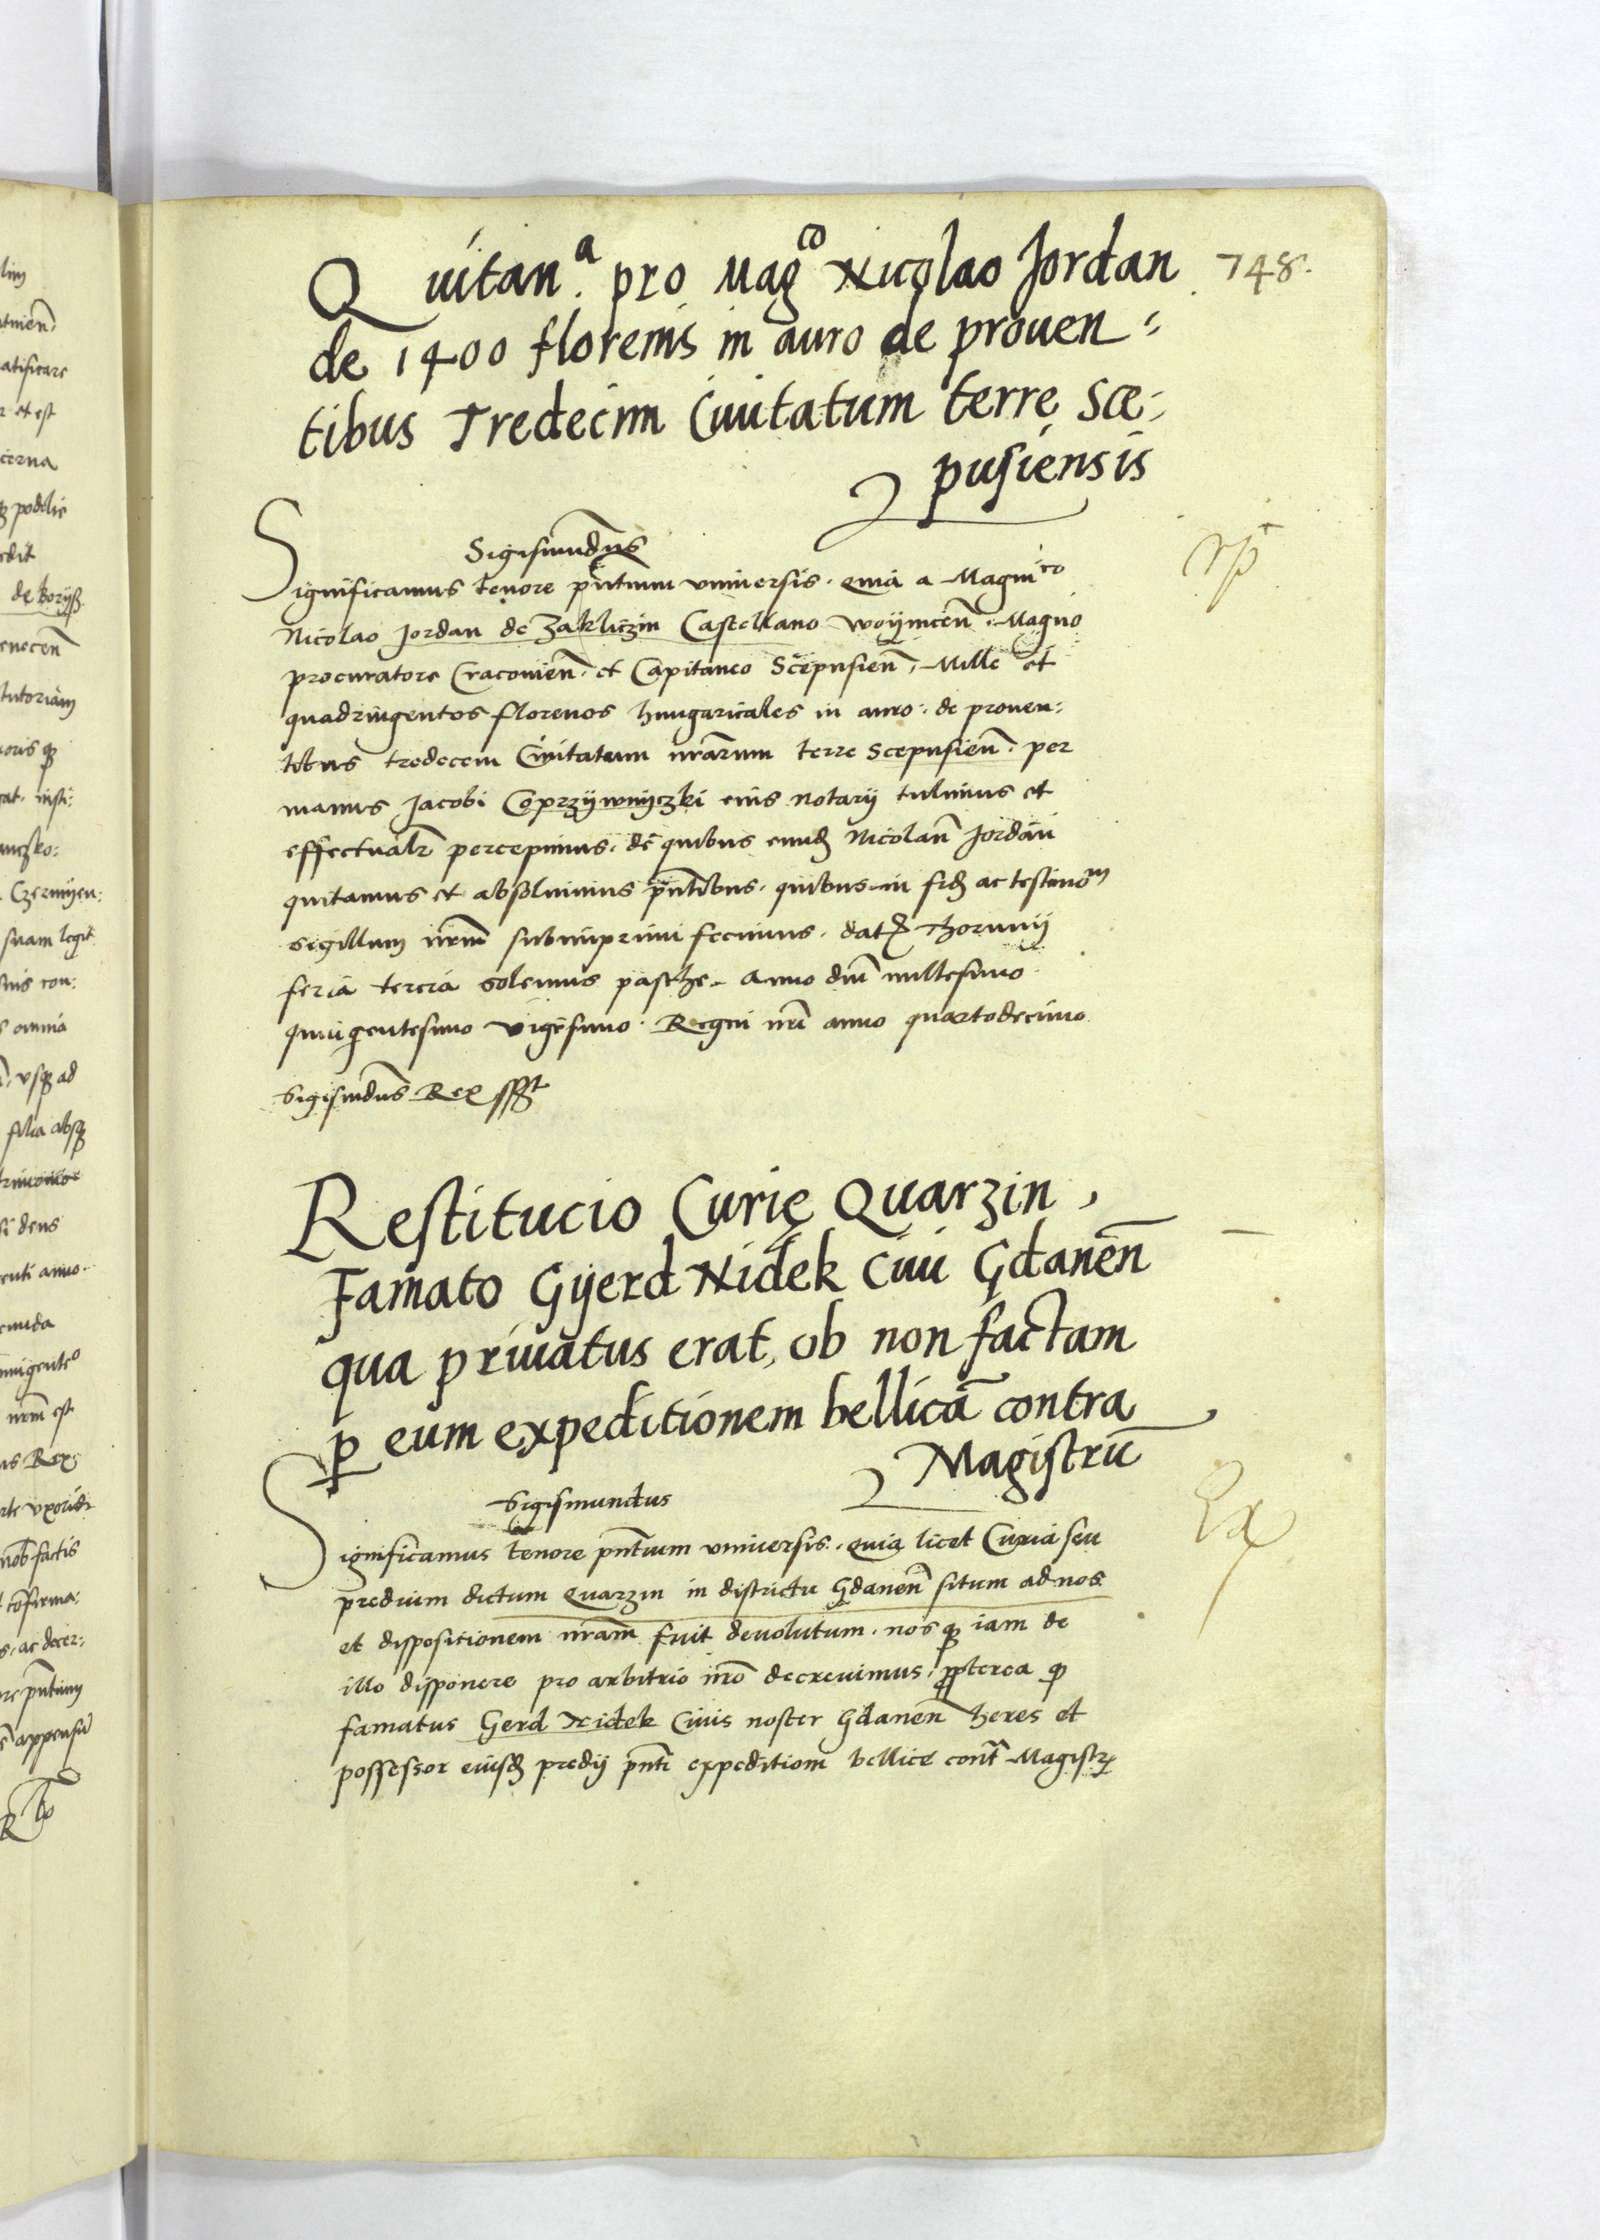 Quitanᵃ. pro Magᶜᵒ Nicolao Jordan 748.
de 1400 florenis in auro de prouen⸗
tibus Tredecim Ciuitatum terrę Sce⸗
pusiensis
Sigismundus
Significamus tenore pn̄tium vniuersis. quia a Magniᶜᵒ
Nicolao Jordan de Zakliczin Castellano Woynicen̄. Magno
procuratore Cracouien̄. et Capitaneo Scepusien̄. Mille et
quadringentos florenos hungaricales in auro. de prouen⸗
tibus tredecem Ciuitatum nr̄arum terre Scepusien̄. per
manus Jacobi Coprzywnyczki eius notarij tulimus et
effectualr̄ percepimus. de quibus eund Nicolaū Jordan
quitamus et absoluimus pn̄tibus. quibus in fid ac testimoᵐ
sigillum nrm̄ subimprimi fecimus. dat Thorunij
feria tercia solennis pasche. Anno dnī millesimo
quingentesimo vigesimo. Regni nrī anno quartodecimo
Sigismdus Rex sst
Restitucio Curię Quarzin,
Famato Gyerd Nidek Ciui Gdanen̄
qua priuatus erat, ob non factam
ꝑ eum expeditionem bellicā contra
Magistrū
Sigismundus
Significamus tenore pn̄tium vniuersis. quia licet Curia seu
predium dictum Quarzin in districtu Gdanen̄ situm ad nos
et dispositionem nr̄am fuit deuolutum. nosꝙ iam de
illo disponere pro arbitrio nrō decreuimus, ꝓpterea ꝙ
famatus Gerd Nidek Ciuis noster Gdanen̄ heres et
possessor eiusd predij pn̄ti expeditioni bellice contᵃ Magistꝝ